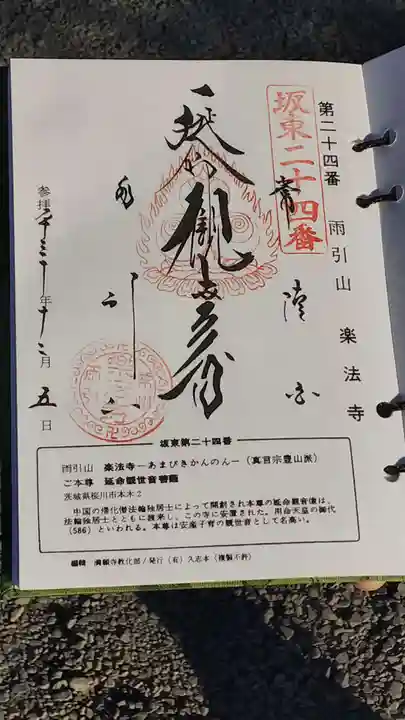 第二十四番 雨引山 楽法寺
坂東二十四番
常陸国
延命観世音
雨引山
参拝平成三十年十二月五日
坂東第二十四番
雨引山 楽法寺―あまびきかんのん―(真言宗豊山派)
ご本尊 延命観世音菩薩
茨城県桜川市本木2
中国の帰化僧法輪独居士によって開創され本尊の延命観音像は、
法輪独居士とともに渡来し、この寺に安置された。用命天皇の御代
(586)といわれる。本尊は安産子育の観世音として名高い。
編輯 満願寺教化部/発行(有)久志本(複製不許)